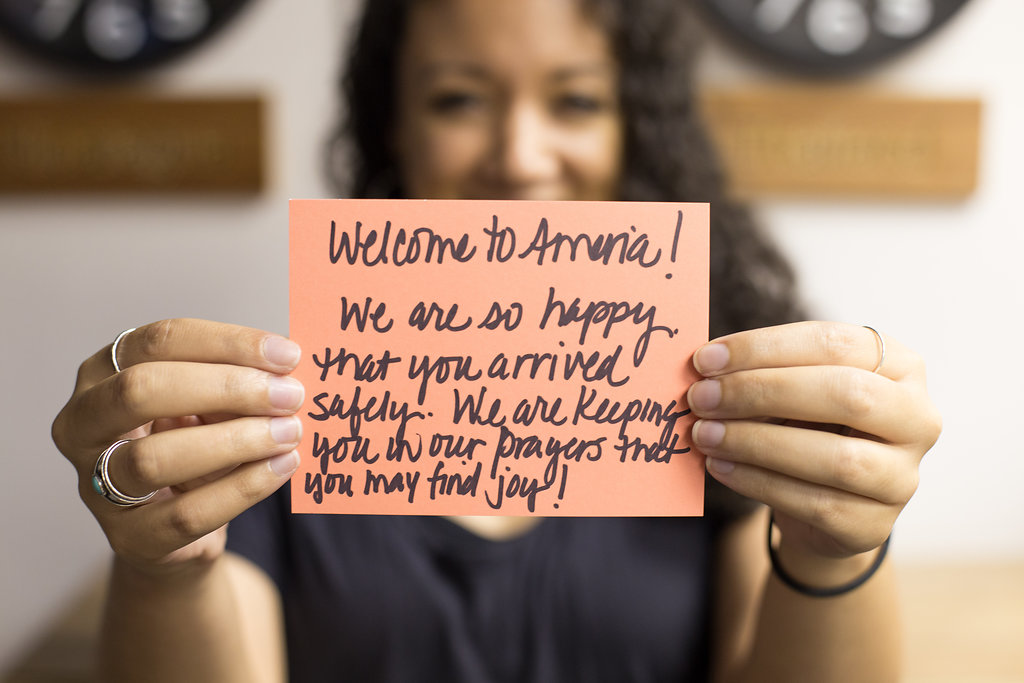 Welcome to America!
We are so happy
that you arrived
safely. We are keeping
you in our prayers that
you may find joy!
7 6 5
7 6 5